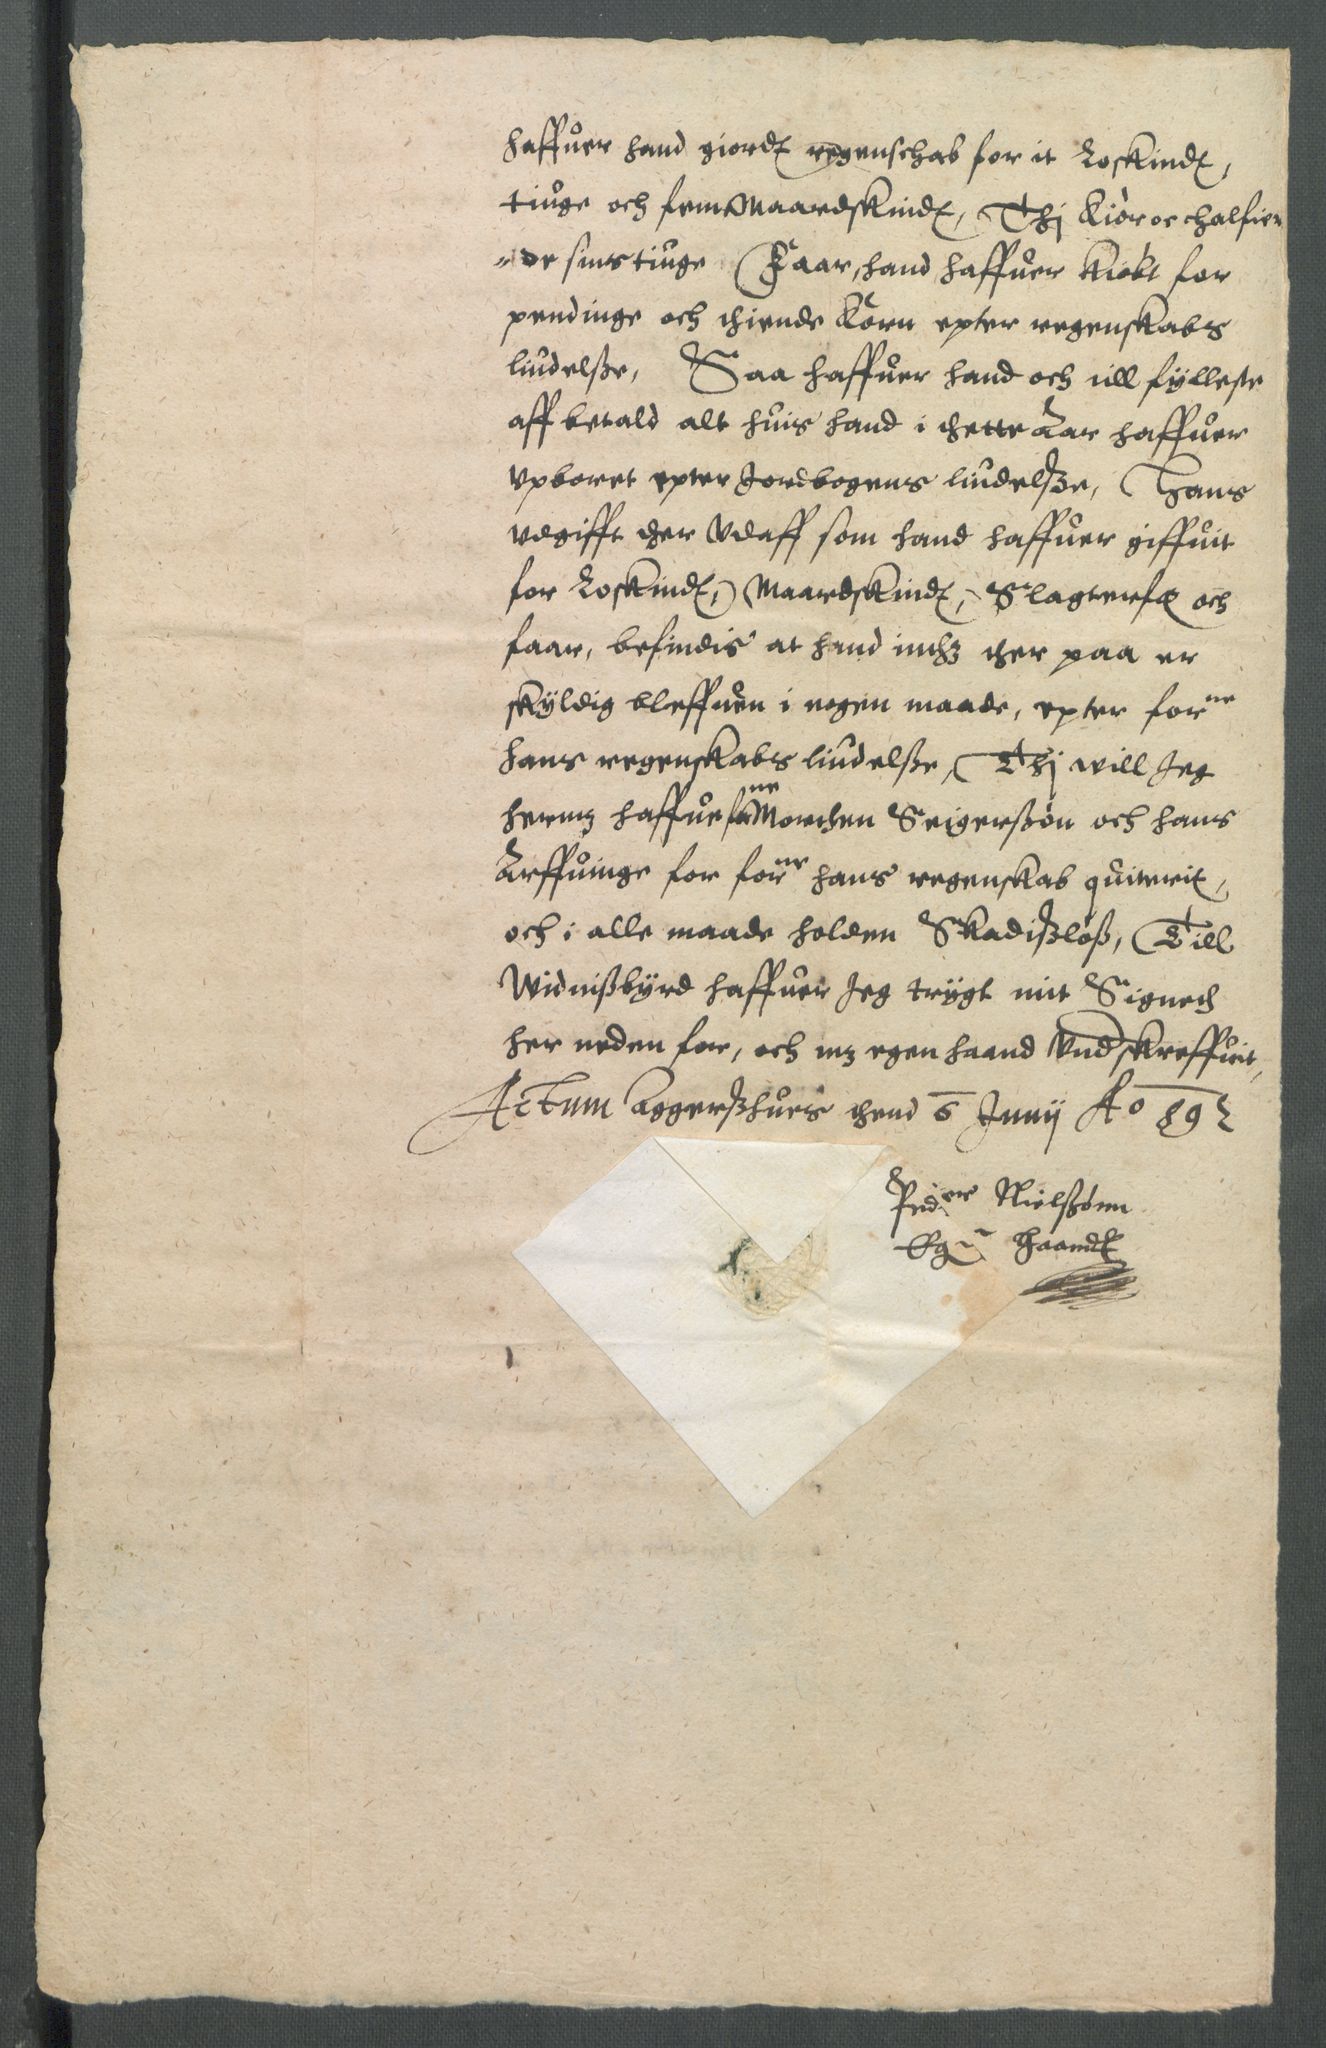 haffuer hand giordt regenschab for it Loskindt,
tiuge och fem Maardskindt, Thj Kiør oc halfier
=de sins tiuge Faar, hand haffuer kiøbt for
pendinge och thiende Korn epter regenskabs
liudelsze, Saa haffuer hand och till fylleste
aff betald alt huis hand i thette Aar haffuer
vpboret epter Jordbogens liudelsze, Hans
vdgifft ther vdaff som hand haffuer giffuit
for Loskindt, Maardskindt, Slagterfæ och
faar, befindis at hand inthz ther paa er
skyldig bleffuen i nogen maade, epter forne
hans regenskabs liudelsze, Thj will Jeg
hermz haffue forne Morthen Seigerszøn och hans
Arffuinge for forne hans regenskab quiterit,
och i alle maade holden Skadiszløsz, Till
Widniszbyrd haffuer Jeg trygt mit Signeth
her neden for, och mz egen haand vndskreffuit,
Actum Aggerszhues thend 6 Junij Ao 91
Peder Nielszønn
Egn Haandt